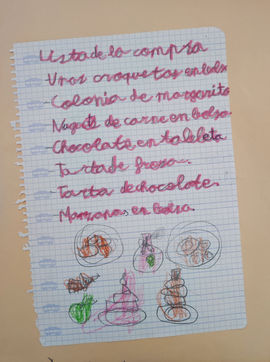 Lista de la compra
Unas croquetas en bolsa
- Colonia de margarita
Nugets de carne en bolsa
- Chocolate en tableta
- Tarta de fresa.
- Tarta de chocolate.
- Manzanas en bolsa.